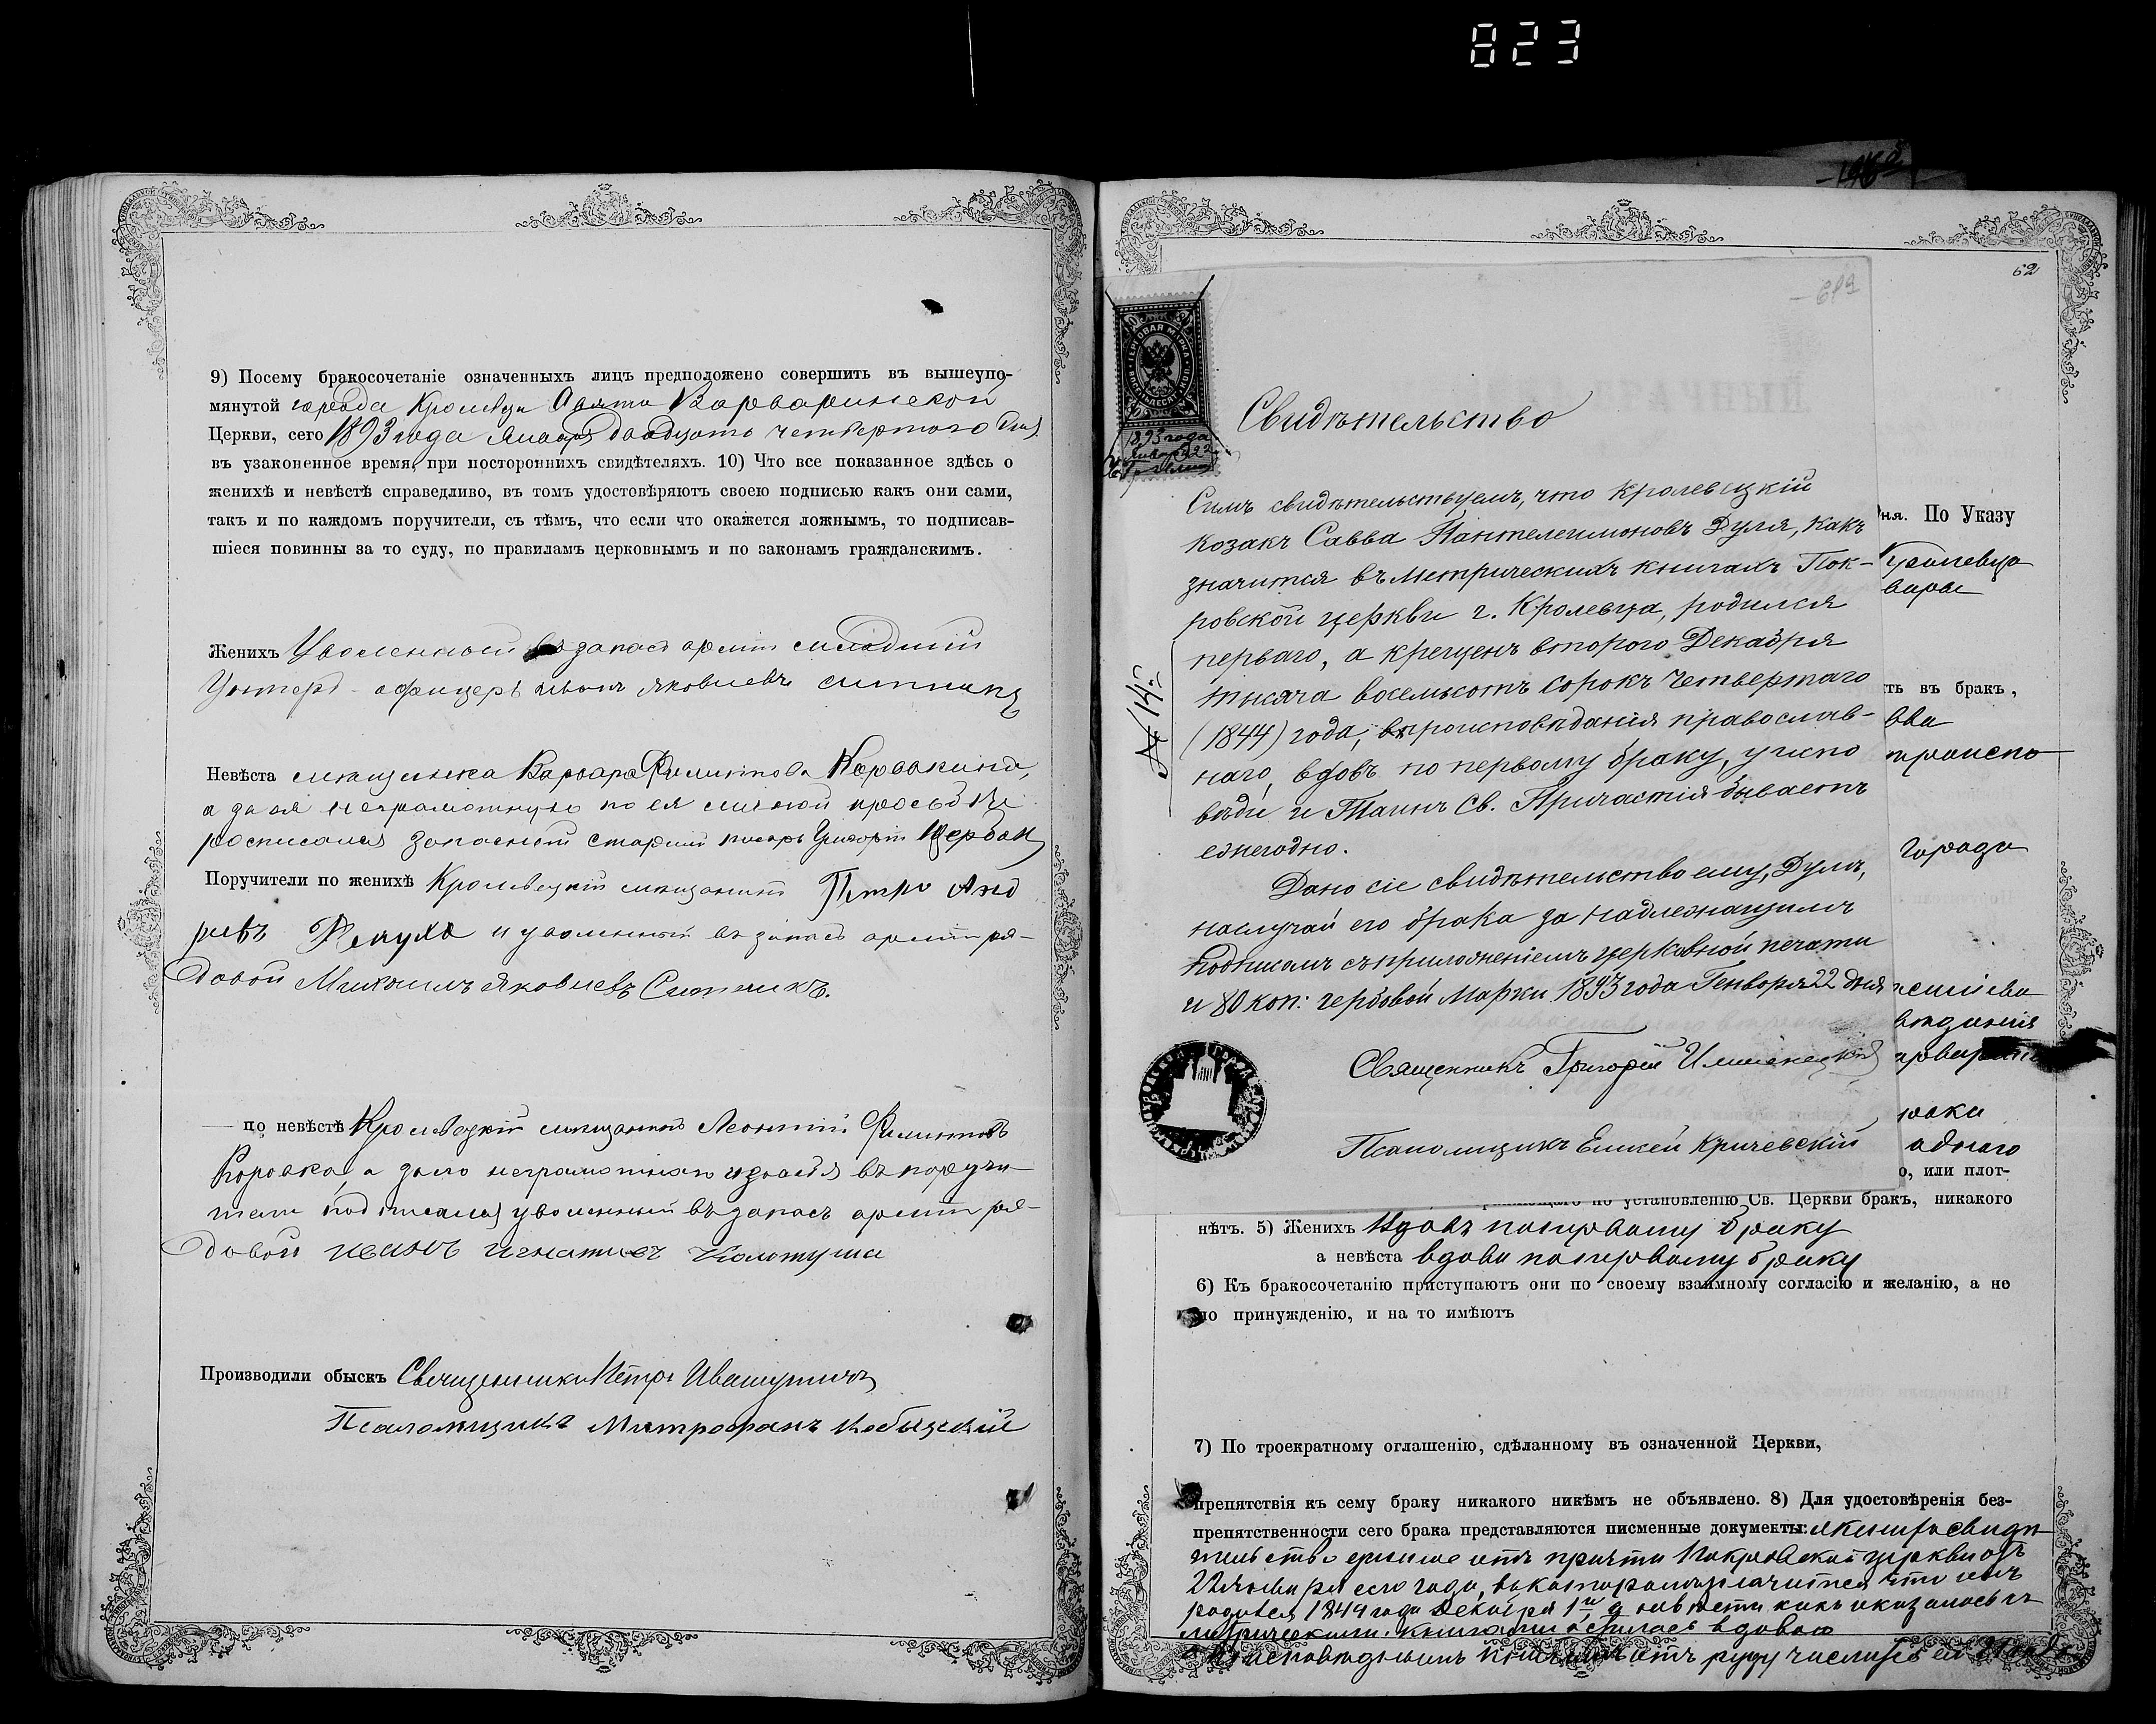 823
9) Посему бракосочетаніе означенныхъ лицъ предположено совершить въ вышеупо-
мянутой города Кролевца Свято Варваринской
Церкви, сего 1893 года Января двадцать четвертого дня
въ узаконенное время, при постороннихъ свидѣтеляхъ. 10) Что все показанное здѣсь о
женихѣ и невѣстѣ справедливо, въ томъ удостовѣряютъ своею подписью какъ они сами,
такъ и по каждомъ поручители, съ тѣмъ, что если что окажется ложнымъ, то подписав-
шіеся повинны за то суду, по правиламъ церковнымъ и по законамъ гражданскимъ.
Женихъ Уволенный въ запасъ арміи младшій
Унтеръ-офицеръ Яковлевъ Ситникъ
Невѣста мѣщанка Варвара Филиппова Коровкина,
а за ея неграмотную по ея личной просьбѣ
росписался запасный старшій писарь Григорій Щербакъ
Поручители по женихѣ Кролевецкій мѣщанинъ Петръ Анд
реевъ и уволенный въ запасъ арміи ря-
довой Михаилъ Яковлевъ Ситникъ.
— по невѣстѣ Кролевецкій мѣщанинъ Леонтій Филипповъ
Коровка, а за его неграмотнаго и за себя въ поручи-
тели подписался уволенный въ запасъ арміи ря-
довой Иванъ Игнатіевъ Колотуша
Производили обыскъ Священникъ Петръ Ивашутичъ
Псаломщикъ Митрофанъ
62
ГЕРБОВАЯ МАРКА
ВОСЕМЬДЕСЯТЪ КОП.
1893 года
Января 22
Свидѣтельство
№ 14й
Симъ свидѣтельствуемъ, что Кролевецкій
козакъ Савва Пантелеимоновъ Дуля, какъ
значится въ Метрическихъ книгахъ Пок-
ровской церкви г. Кролевца, родился
перваго, а крещенъ второго Декабря
тысяча восемьсотъ сорокъ четвертаго
(1844) года, вѣроисповѣданія православ-
наго, вдовъ по первому браку, у испо
вѣди и Таинъ Св. Причастія бываетъ
ежегодно.
Дано сіе свидѣтельство ему, Дулѣ,
на случай его брака за надлежащимъ
подписомъ съ приложеніемъ церковной печати
и 80 коп: гербовой Марки 1893 года Генваря 22 дня
Священникъ Григорій
Псаломщикъ Елисей Кричевскій
дня. По Указу
Кролевца
ть въ бракъ,
ова
города
о, или плот-
по установленію Св. Церкви бракъ, никакого
нѣтъ. 5) Женихъ вдовъ по первому браку
а невѣста вдова по первому браку
6) Къ бракосочетанію приступаютъ они по своему взаимному согласію и желанію, а не
по принужденію, и на то имѣютъ
7) По троекратному оглашенію, сдѣланному въ означенной Церкви,
препятствія къ сему браку никакого никѣмъ не объявлено. 8) Для удостовѣренія без-
препятственности сего брака представляются писменные документы: жениха свидѣ
тельство отъ причта Покровской церкви отъ
22 Января сего года, въ которомъ значится что онъ
родился 1844 года Декабря 1го, а невѣста какъ оказалось съ
метрическими книгами вдовою